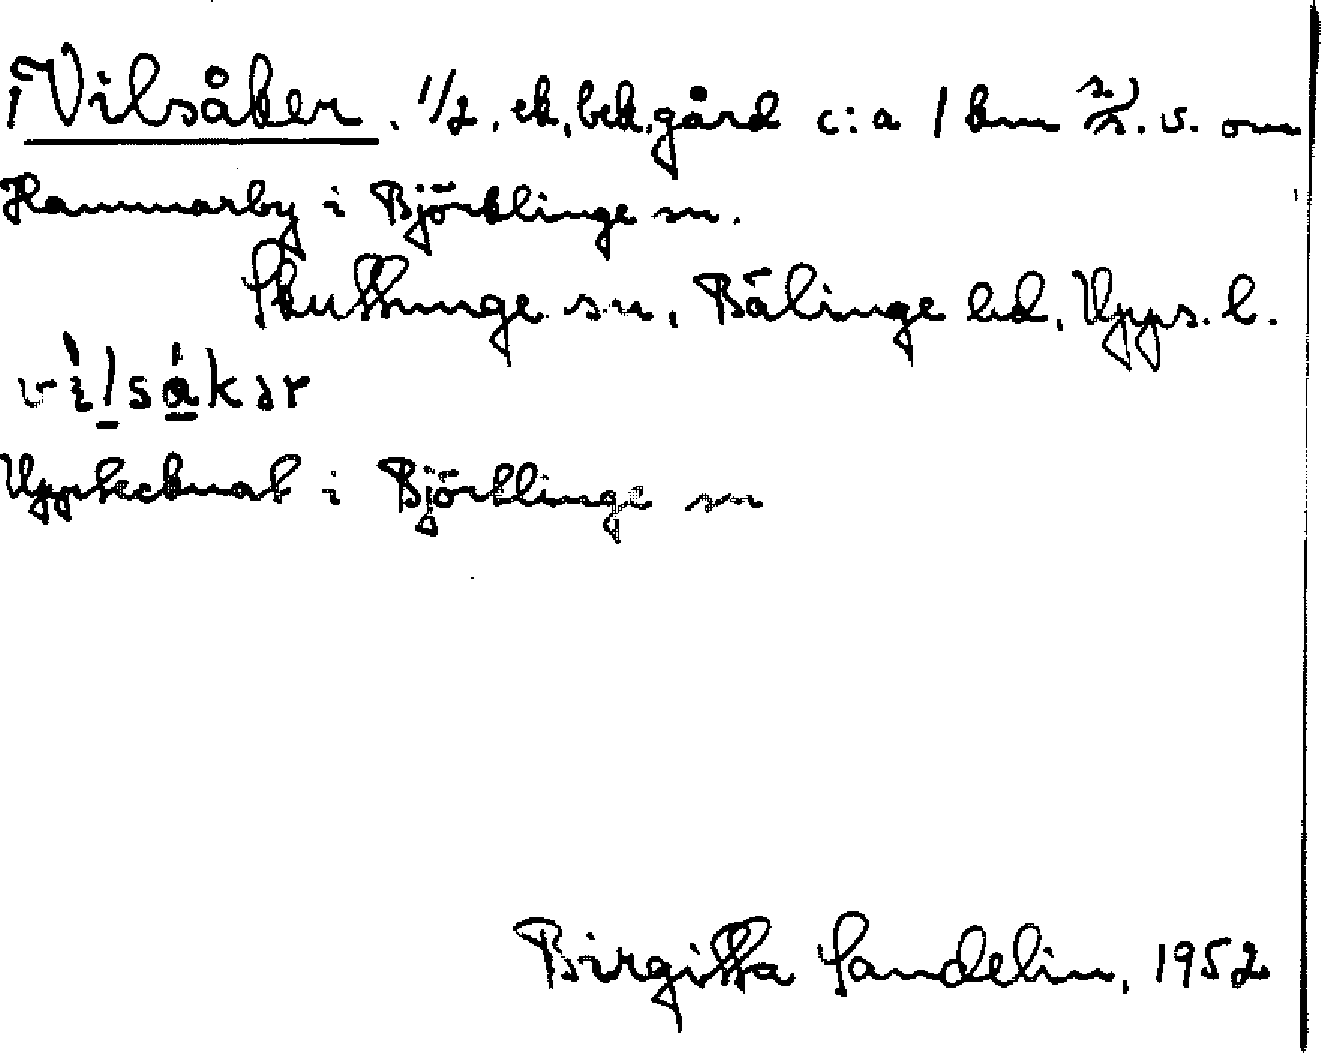 Vilsåker. 1/2, ek, bek. gård c:a 1 km s.v. om
Hammarby i Björklinge sn.
Skuttunge sn, Bälinge hd, Upps. l.
vilsåkər
Upptecknat i Björklinge sn
Birgitta Sandelin, 1952